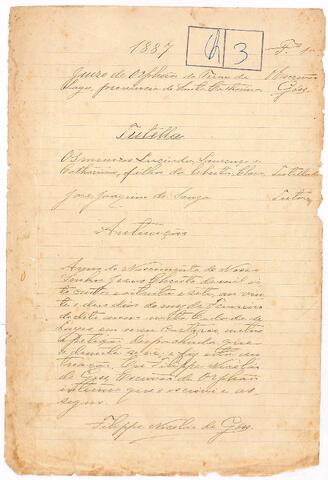 1887
6 3
Fs. 1
Juizo de Orphãos do Termo de Escrivão
Lages, provincia de Santa Catharina Góss
Tutella
Os menores Lourenço e
Catharina, filhos de Clara Tutellados
José Joaquim de Souza Tutor
Autuação
Anno do Nascimento de Nosso
Senhor Jesus Christo de mil oi
to centos e oitenta e sete, aos vin
te e dous dias do mez de Fevereiro
do dito anno nesta Cidade de
Lages em meu Cartorio, autuo
a petição despachada que a
diante se vê; e faço esta au
tuação. Eu Filippe Nicoláo
de Góss Escrivão de Orphãos
interino que o escrevi e as
signo.
Filippe Nicoláo de Góss